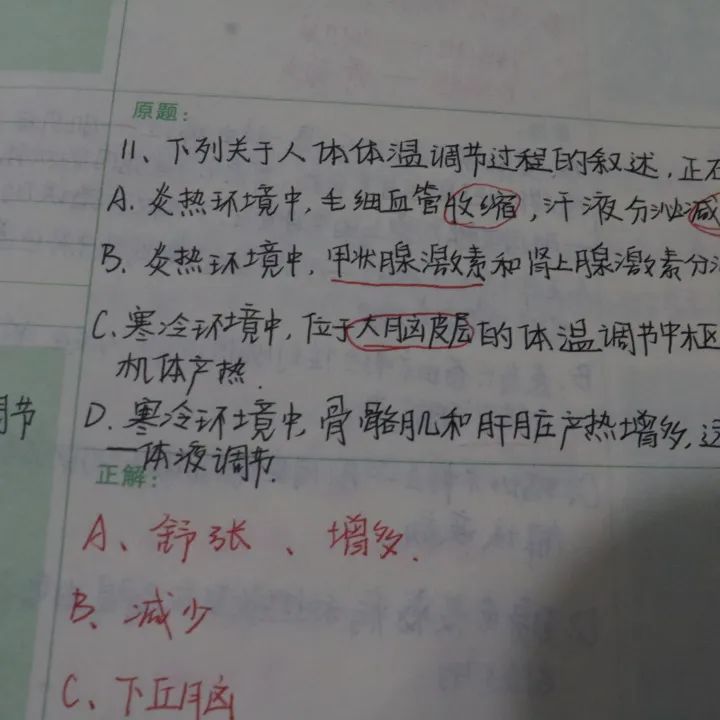 原题：
11、下列关于人体体温调节过程的叙述，正
A. 炎热环境中，毛细血管收缩，汗液分泌减
B. 炎热环境中，甲状腺激素和肾上腺激素分泌
C. 寒冷环境中，位于大脑皮层的体温调节中枢
机体产热.
D. 寒冷环境中，骨骼肌和肝脏产热增多，这
节
—体液调节.
正解：
A、舒张、增多.
B、减少
C、下丘脑